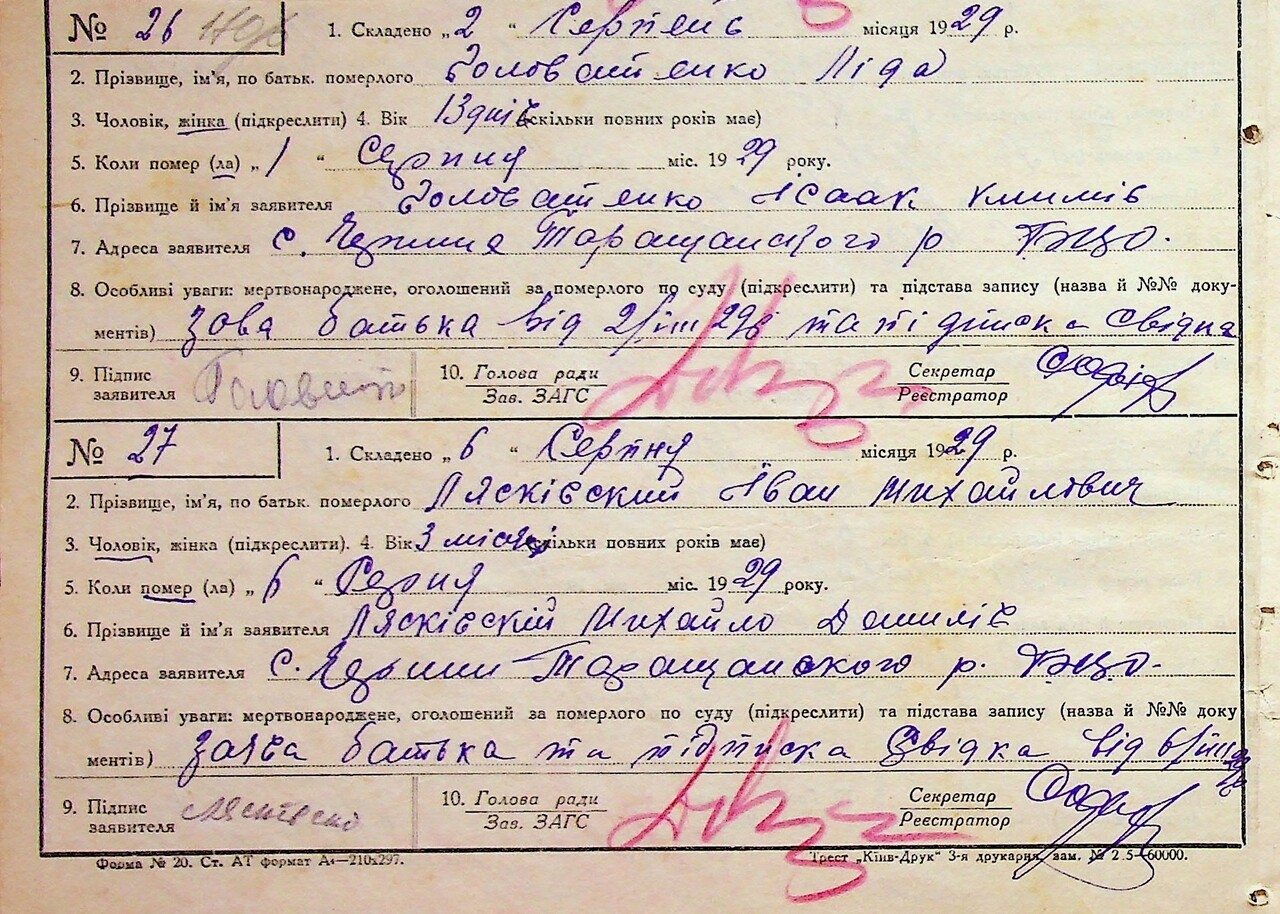 № 26 1. Складено „2 “ Серпень місяця 1929 р.
2. Прізвище, ім’я, по батьк. померлого Головатенко Ліда
3. Чоловік, жінка (підкреслити) 4. Вік 13 днів (скільки повних років має)
5. Коли помер (ла) „ 1 “ Серпня міс. 1929 року.
6. Прізвище й ім’я заявителя Головатенко Ісаак Климів
7. Адреса заявителя с. Таращанского р БЦО.
8. Особливі уваги: мертвонароджене, оголошений за померлого по суду (підкреслити) та підстава запису (назва й №№ доку-
ментів) батька від та підписка свідка
9. Підпис
заявителя
10. Голова ради
Зав. ЗАГС
Секретар
Реєстратор
№ 27 1. Складено „ 6 “ Серпня місяця 1929 р.
2. Прізвище, ім’я, по батьк. померлого Лясківский Іван Михайлівич
3. Чоловік, жінка (підкреслити). 4. Вік 3 місяці (скільки повних років має)
5. Коли помер (ла) „ 6 “ Серпня міс. 1929 року.
6. Прізвище й ім’я заявителя Лясківский Михайло Данилів
7. Адреса заявителя с. Таращанского р. БЦО.
8. Особливі уваги: мертвонароджене, оголошений за померлого по суду (підкреслити) та підстава запису (назва й №№ доку
ментів) заява батька та підписка свідка від
9. Підпис
заявителя
10. Голова ради
Зав. ЗАГС
Секретар
Реєстратор
Форма № 20. Ст. АТ формат А4—210х297. Трест „Київ-Друк“ 3-я друкарня, зам. № 2 5—60000.